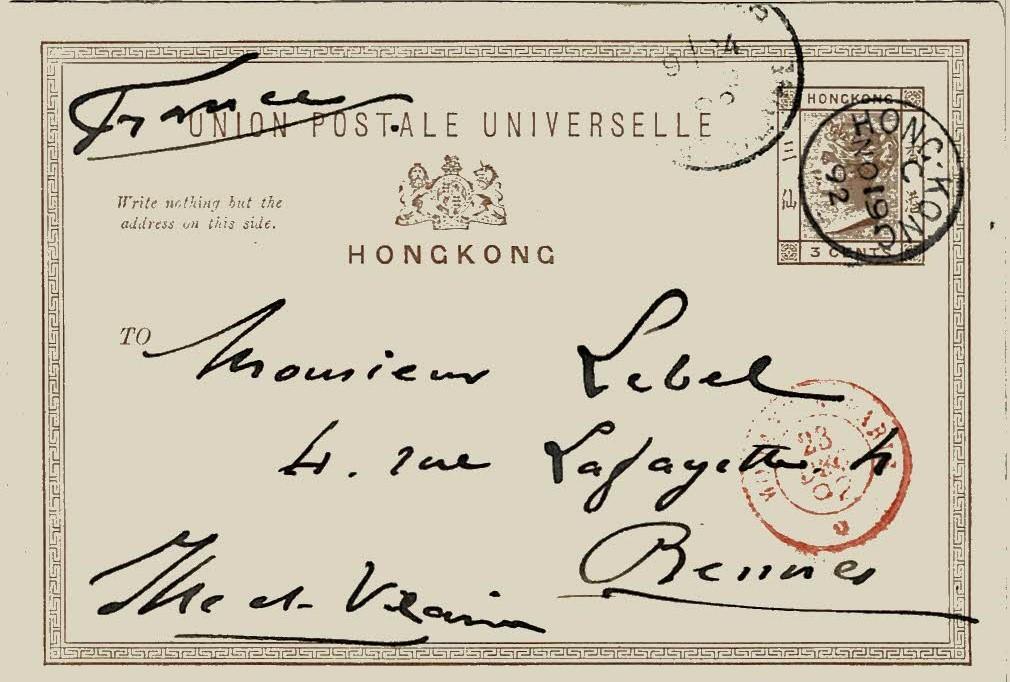 France.
UNION POSTALE UNIVERSELLE
HONGKONG
三
仙
3 CENTS
HONG-KONG
C
NO 19
92
Write nothing but the
address on this side.
HONGKONG
TO
Monsieur Lebel
4. rue Lafayette. 4
Rennes
Ille et-Vilaine
23
DEC
92